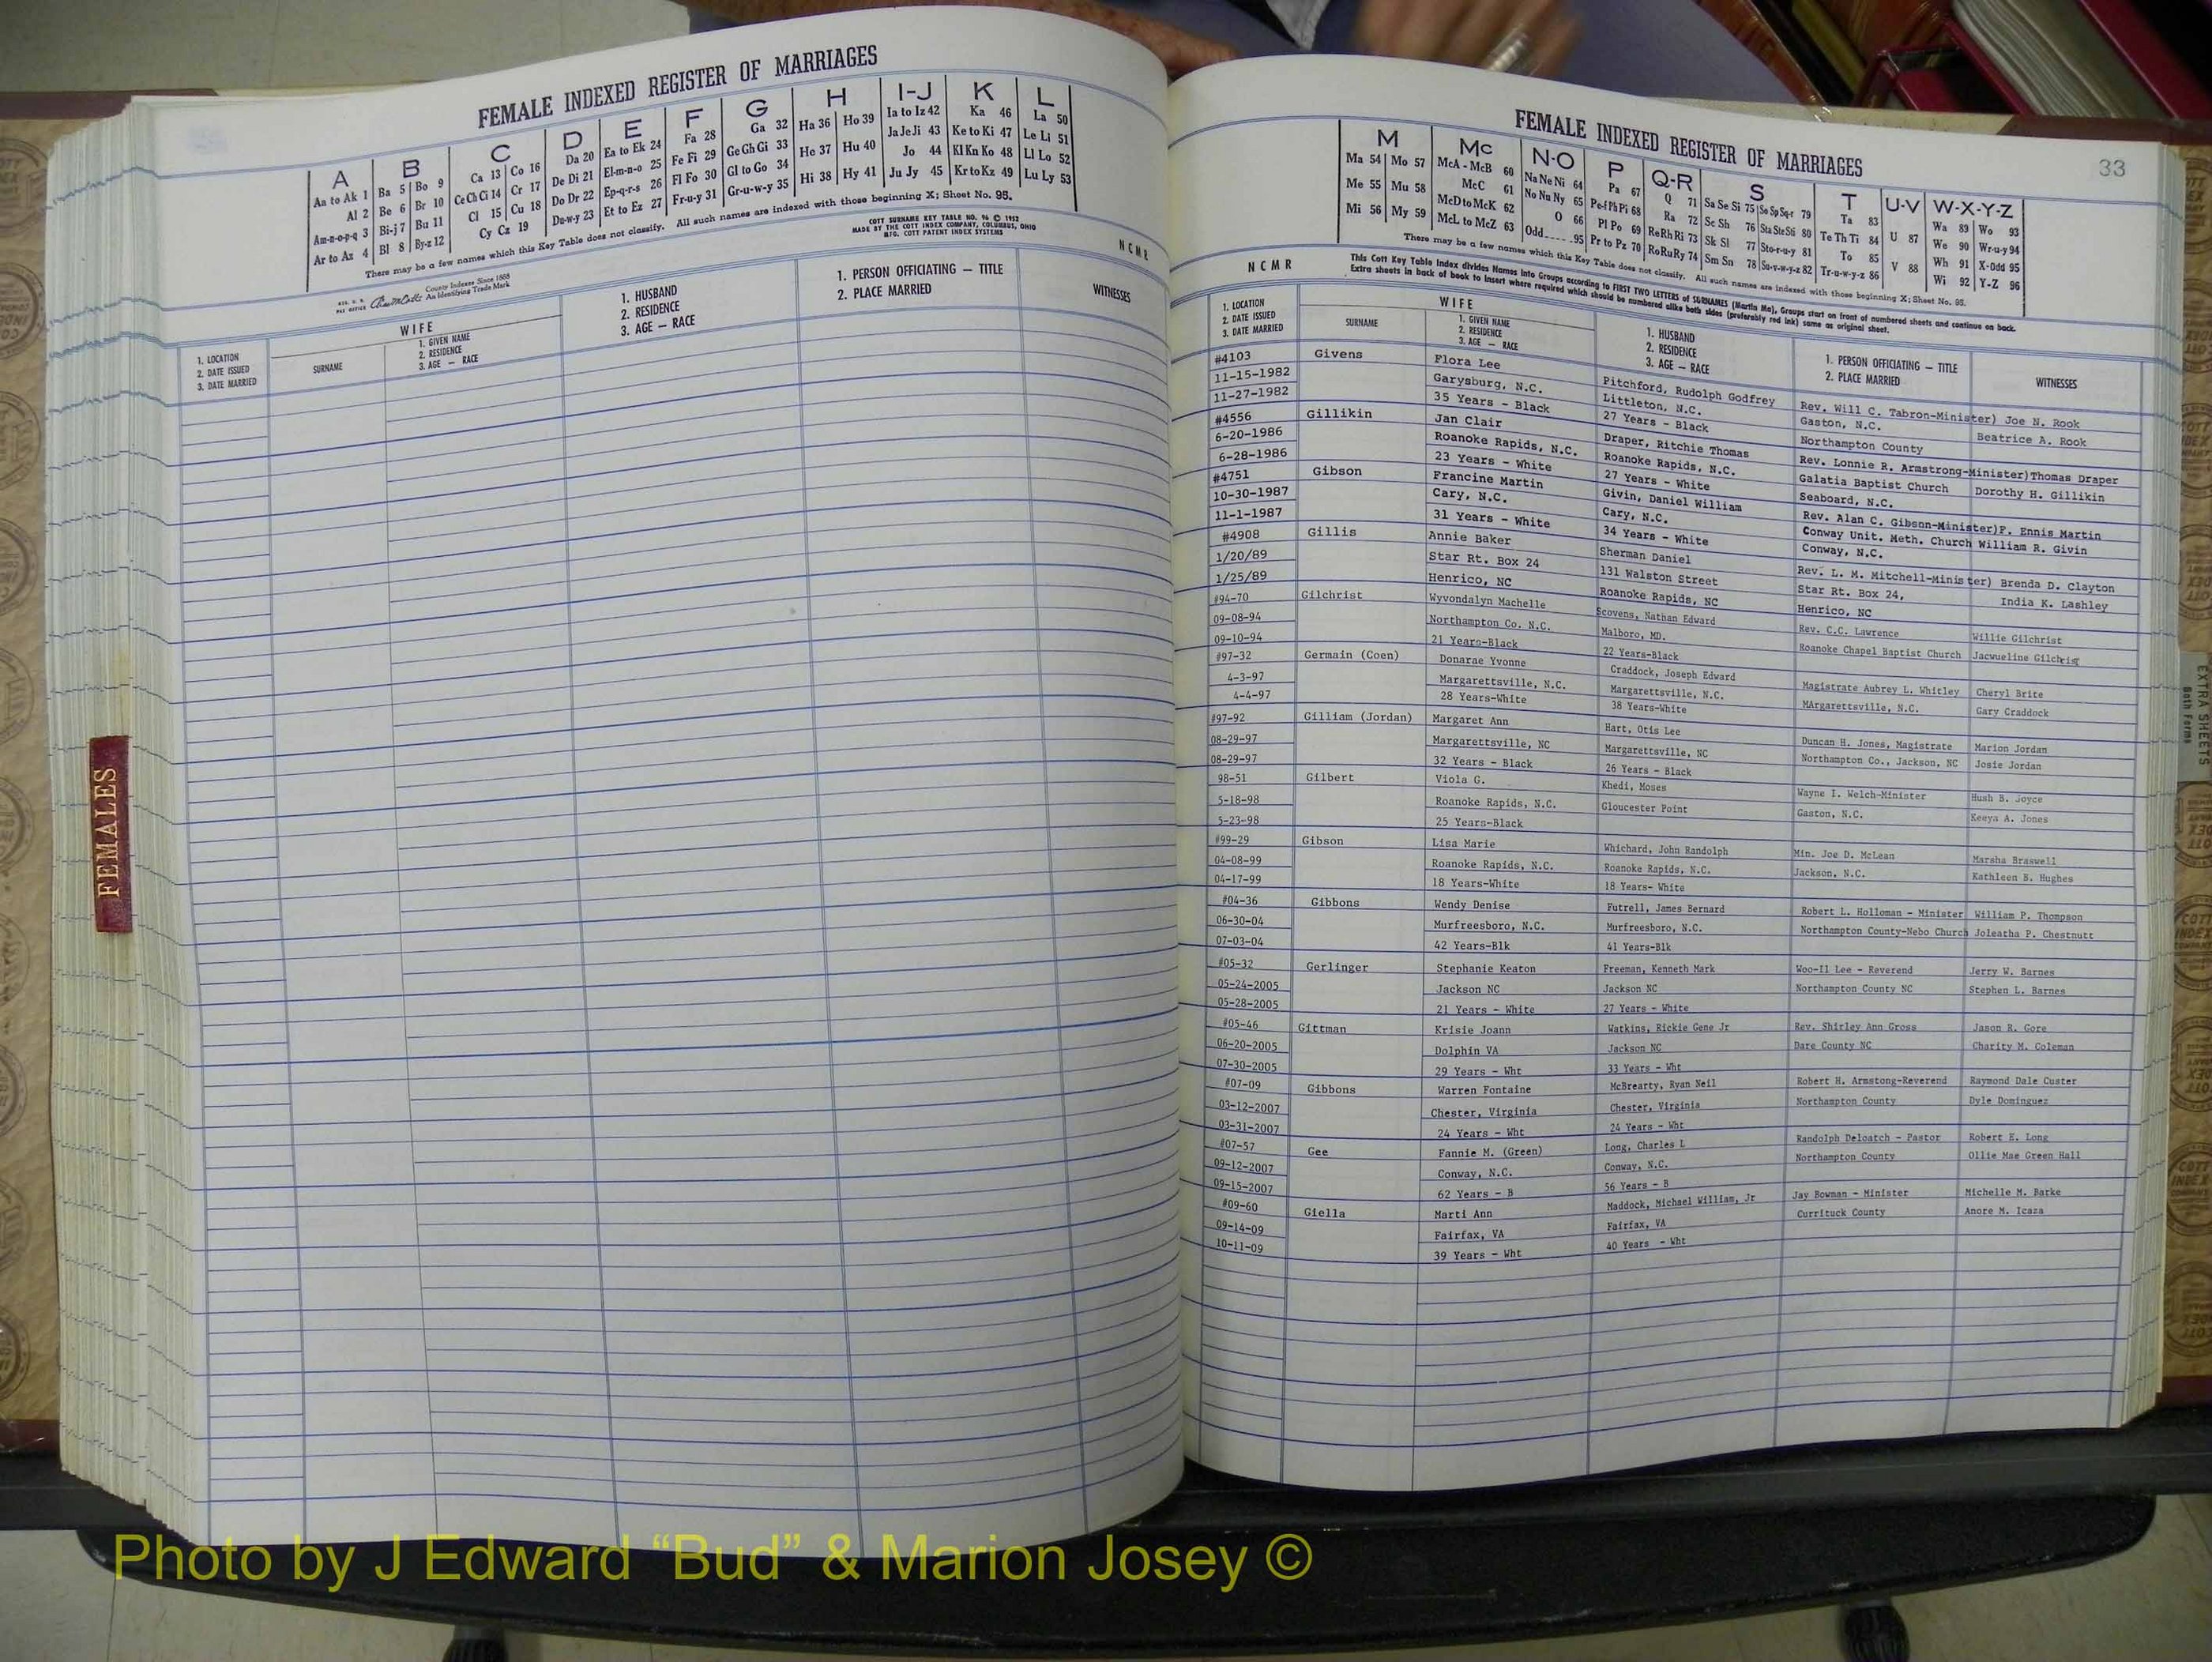 FEMALE INDEXED REGISTER OF MARRIAGES
A B C D E F G H I-J K L
Aa to Ak 1 Ba 5 Bo 9 Ca 13 Co 16 Da 20 Ea to Ek 24 Fa 28 Ga 32 Ha 36 Ho 39 Ia to Iz 42 Ka 46 La 50
Al 2 Be 6 Br 10 Ce Ch Ci 14 Cr 17 De Di 21 El-m-n-o 25 Fe Fi 29 Ge Gh Gi 33 He 37 Hu 40 Ja Je Ji 43 Ke to Ki 47 Le Li 51
Am-n-o-p-q 3 Bi-j 7 Bu 11 Cl 15 Cu 18 Do Dr 22 Ep-q-r-s 26 Fl Fo 30 Gl to Go 34 Hi 38 Hy 41 Jo 44 Kl Kn Ko 48 Ll Lo 52
Ar to Az 4 Bl 8 By-z 12 Cy Cz 19 Du-w-y 23 Et to Ez 27 Fr-u-y 31 Gr-u-w-y 35 Ju Jy 45 Kr to Kz 49 Lu Ly 53
There may be a few names which this Key Table does not classify. All such names are indexed with those beginning X; Sheet No. 95.
COTT SURNAME KEY TABLE NO. 96 © 1952
MADE BY THE COTT INDEX COMPANY, COLUMBUS, OHIO
MFG. COTT PATENT INDEX SYSTEMS
County Indexes Since 1888
An Identifying Trade Mark
N C M R
1. LOCATION
2. DATE ISSUED
3. DATE MARRIED
WIFE
SURNAME
1. GIVEN NAME
2. RESIDENCE
3. AGE — RACE
1. HUSBAND
2. RESIDENCE
3. AGE — RACE
1. PERSON OFFICIATING — TITLE
2. PLACE MARRIED
WITNESSES
FEMALES
FEMALE INDEXED REGISTER OF MARRIAGES
33
M Mc N-O P Q-R S T U-V W-X-Y-Z
Ma 54 Mo 57 McA - McB 60 Na Ne Ni 64 Pa 67 Q 71 Sa Se Si 75 So Sp Sq-r 79 Ta 83 U 87 Wa 89 Wo 93
Me 55 Mu 58 McC 61 No Nu Ny 65 Pe-f Ph Pi 68 Ra 72 Sc Sh 76 Sta Ste Sti 80 Te Th Ti 84 V 88 We 90 Wr-u-y 94
Mi 56 My 59 McD to McK 62 O 66 Pl Po 69 Re Rh Ri 73 Sk Sl 77 Sto-r-u-y 81 To 85 Wh 91 X-Odd 95
McL to McZ 63 Odd .95 Pr to Pz 70 Ro Ru Ry 74 Sm Sn 78 Su-v-w-y-z 82 Tr-u-w-y-z 86 Wi 92 Y-Z 96
There may be a few names which this Key Table does not classify. All such names are indexed with those beginning X; Sheet No. 95.
N C M R
This Cott Key Table Index divides Names into Groups according to FIRST TWO LETTERS of SURNAMES (Martin Ma). Groups start on front of numbered sheets and continue on back.
Extra sheets in back of book to insert where required which should be numbered alike both sides (preferably red ink) same as original sheet.
1. LOCATION
2. DATE ISSUED
3. DATE MARRIED
WIFE
SURNAME
1. GIVEN NAME
2. RESIDENCE
3. AGE — RACE
1. HUSBAND
2. RESIDENCE
3. AGE — RACE
1. PERSON OFFICIATING — TITLE
2. PLACE MARRIED
WITNESSES
#4103 Givens Flora Lee Pitchford, Rudolph Godfrey Rev. Will C. Tabron-Minister) Joe N. Rook
11-15-1982 Garysburg, N.C. Littleton, N.C. Gaston, N.C. Beatrice A. Rook
11-27-1982 35 Years - Black 27 Years - Black Northampton County
#4556 Gillikin Jan Clair Draper, Ritchie Thomas Rev. Lonnie R. Armstrong-Minister)Thomas Draper
6-20-1986 Roanoke Rapids, N.C. Roanoke Rapids, N.C. Galatia Baptist Church Dorothy H. Gillikin
6-28-1986 23 Years - White 27 Years - White Seaboard, N.C.
#4751 Gibson Francine Martin Givin, Daniel William Rev. Alan C. Gibson-Minister)P. Ennis Martin
10-30-1987 Cary, N.C. Cary, N.C. Conway Unit. Meth. Church William R. Givin
11-1-1987 31 Years - White 34 Years - White Conway, N.C.
#4908 Gillis Annie Baker Sherman Daniel Rev. L. M. Mitchell-Minister) Brenda D. Clayton
1/20/89 Star Rt. Box 24 131 Walston Street Star Rt. Box 24, India K. Lashley
1/25/89 Henrico, NC Roanoke Rapids, NC Henrico, NC
#94-70 Gilchrist Wyvondalyn Machelle Scovens, Nathan Edward Rev. C.C. Lawrence Willie Gilchrist
09-08-94 Northampton Co. N.C. Malboro, MD. Roanoke Chapel Baptist Church Jacwueline Gilchrist
09-10-94 21 Years-Black 22 Years-Black
#97-32 Germain (Coen) Donarae Yvonne Craddock, Joseph Edward Magistrate Aubrey L. Whitley Cheryl Brite
4-3-97 Margarettsville, N.C. Margarettsville, N.C. MArgarettsville, N.C. Gary Craddock
4-4-97 28 Years-White 38 Years-White
#97-92 Gilliam (Jordan) Margaret Ann Hart, Otis Lee Duncan H. Jones, Magistrate Marion Jordan
08-29-97 Margarettsville, NC Margarettsville, NC Northampton Co., Jackson, NC Josie Jordan
08-29-97 32 Years - Black 26 Years - Black
98-51 Gilbert Viola G. Khedi, Moses Wayne I. Welch-Minister Hush B. Joyce
5-18-98 Roanoke Rapids, N.C. Gloucester Point Gaston, N.C. Keeya A. Jones
5-23-98 25 Years-Black
#99-29 Gibson Lisa Marie Whichard, John Randolph Min. Joe D. McLean Marsha Braswell
04-08-99 Roanoke Rapids, N.C. Roanoke Rapids, N.C. Jackson, N.C. Kathleen B. Hughes
04-17-99 18 Years-White 18 Years- White
#04-36 Gibbons Wendy Denise Futrell, James Bernard Robert L. Holloman - Minister William P. Thompson
06-30-04 Murfreesboro, N.C. Murfreesboro, N.C. Northampton County-Nebo Church Joleatha P. Chestnutt
07-03-04 42 Years-Blk 41 Years-Blk
#05-32 Gerlinger Stephanie Keaton Freeman, Kenneth Mark Woo-Il Lee - Reverend Jerry W. Barnes
05-24-2005 Jackson NC Jackson NC Northampton County NC Stephen L. Barnes
05-28-2005 21 Years - White 27 Years - White
#05-46 Gittman Krisie Joann Watkins, Rickie Gene Jr Rev. Shirley Ann Gross Jason R. Gore
06-20-2005 Dolphin VA Jackson NC Dare County NC Charity M. Coleman
07-30-2005 29 Years - Wht 33 Years - Wht
#07-09 Gibbons Warren Fontaine McBrearty, Ryan Neil Robert H. Armstong-Reverend Raymond Dale Custer
03-12-2007 Chester, Virginia Chester, Virginia Northampton County Dyle Dominguez
03-31-2007 24 Years - Wht 24 Years - Wht
#07-57 Gee Fannie M. (Green) Long, Charles L Randolph Deloatch - Pastor Robert E. Long
09-12-2007 Conway, N.C. Conway, N.C. Northampton County Ollie Mae Green Hall
09-15-2007 62 Years - B 56 Years - B
#09-60 Giella Marti Ann Maddock, Michael William, Jr Jay Bowman - Minister Michelle M. Barke
09-14-09 Fairfax, VA Fairfax, VA Currituck County Anore M. Icaza
10-11-09 39 Years - Wht 40 Years - Wht
EXTRA SHEETS
Both Forms
Photo by J Edward “Bud” & Marion Josey ©